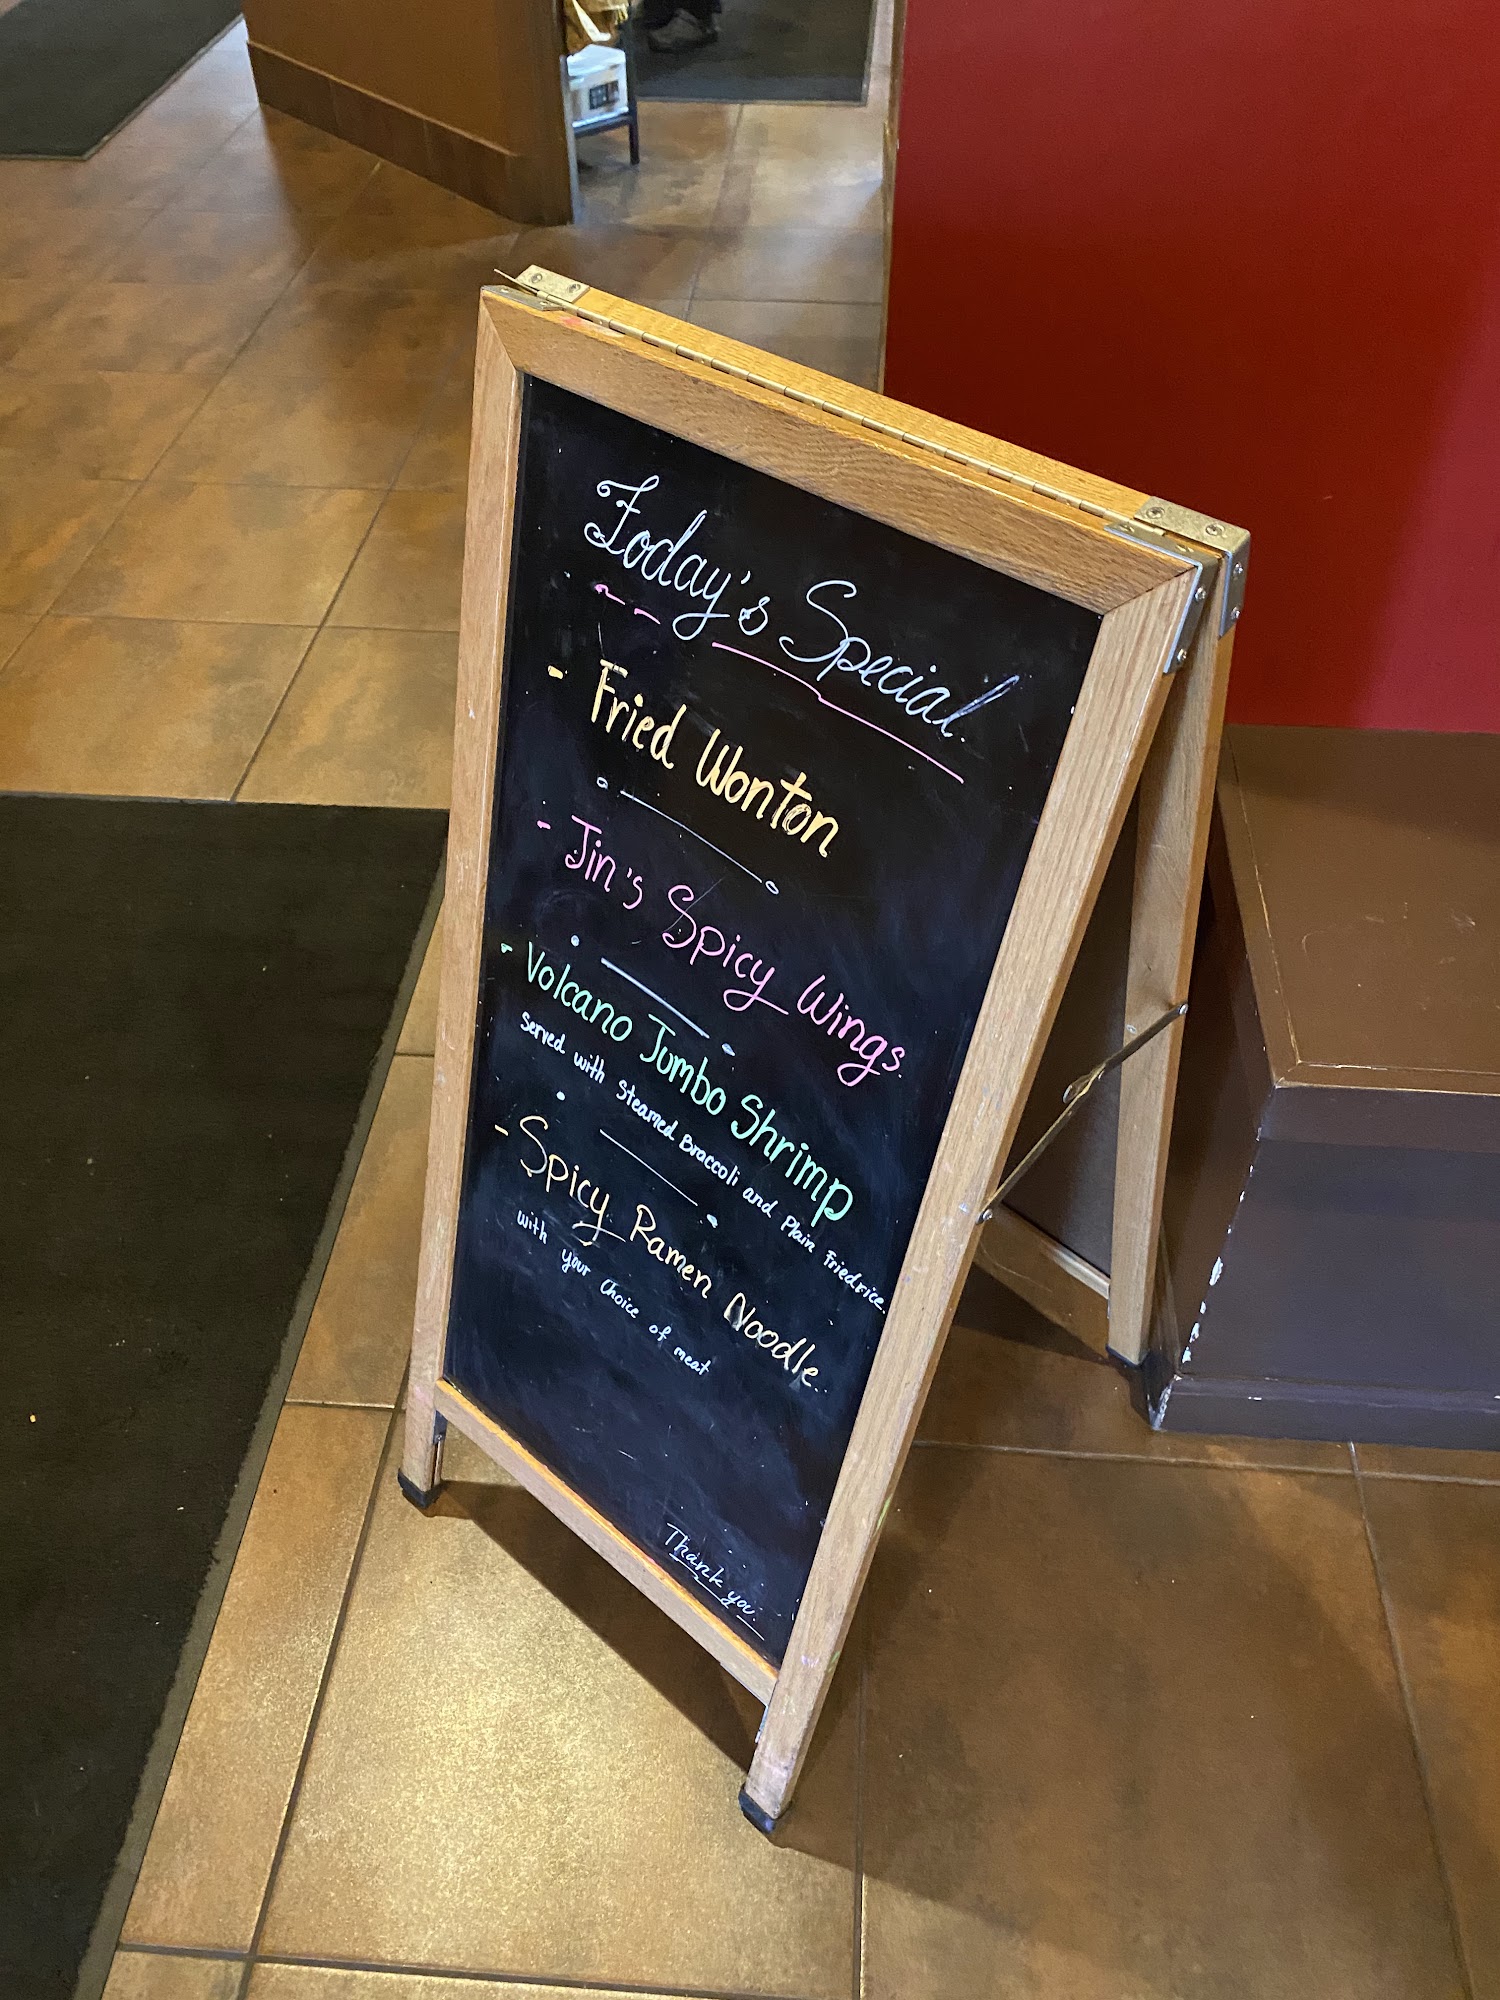 Today's Special.
- Fried Wonton
- Jin's Spicy Wings.
- Volcano Jumbo Shrimp
Served with Steamed Braccoli and Plain Friedrice.
- Spicy Ramen Noodle.
with your Choice of meat
Thank you.